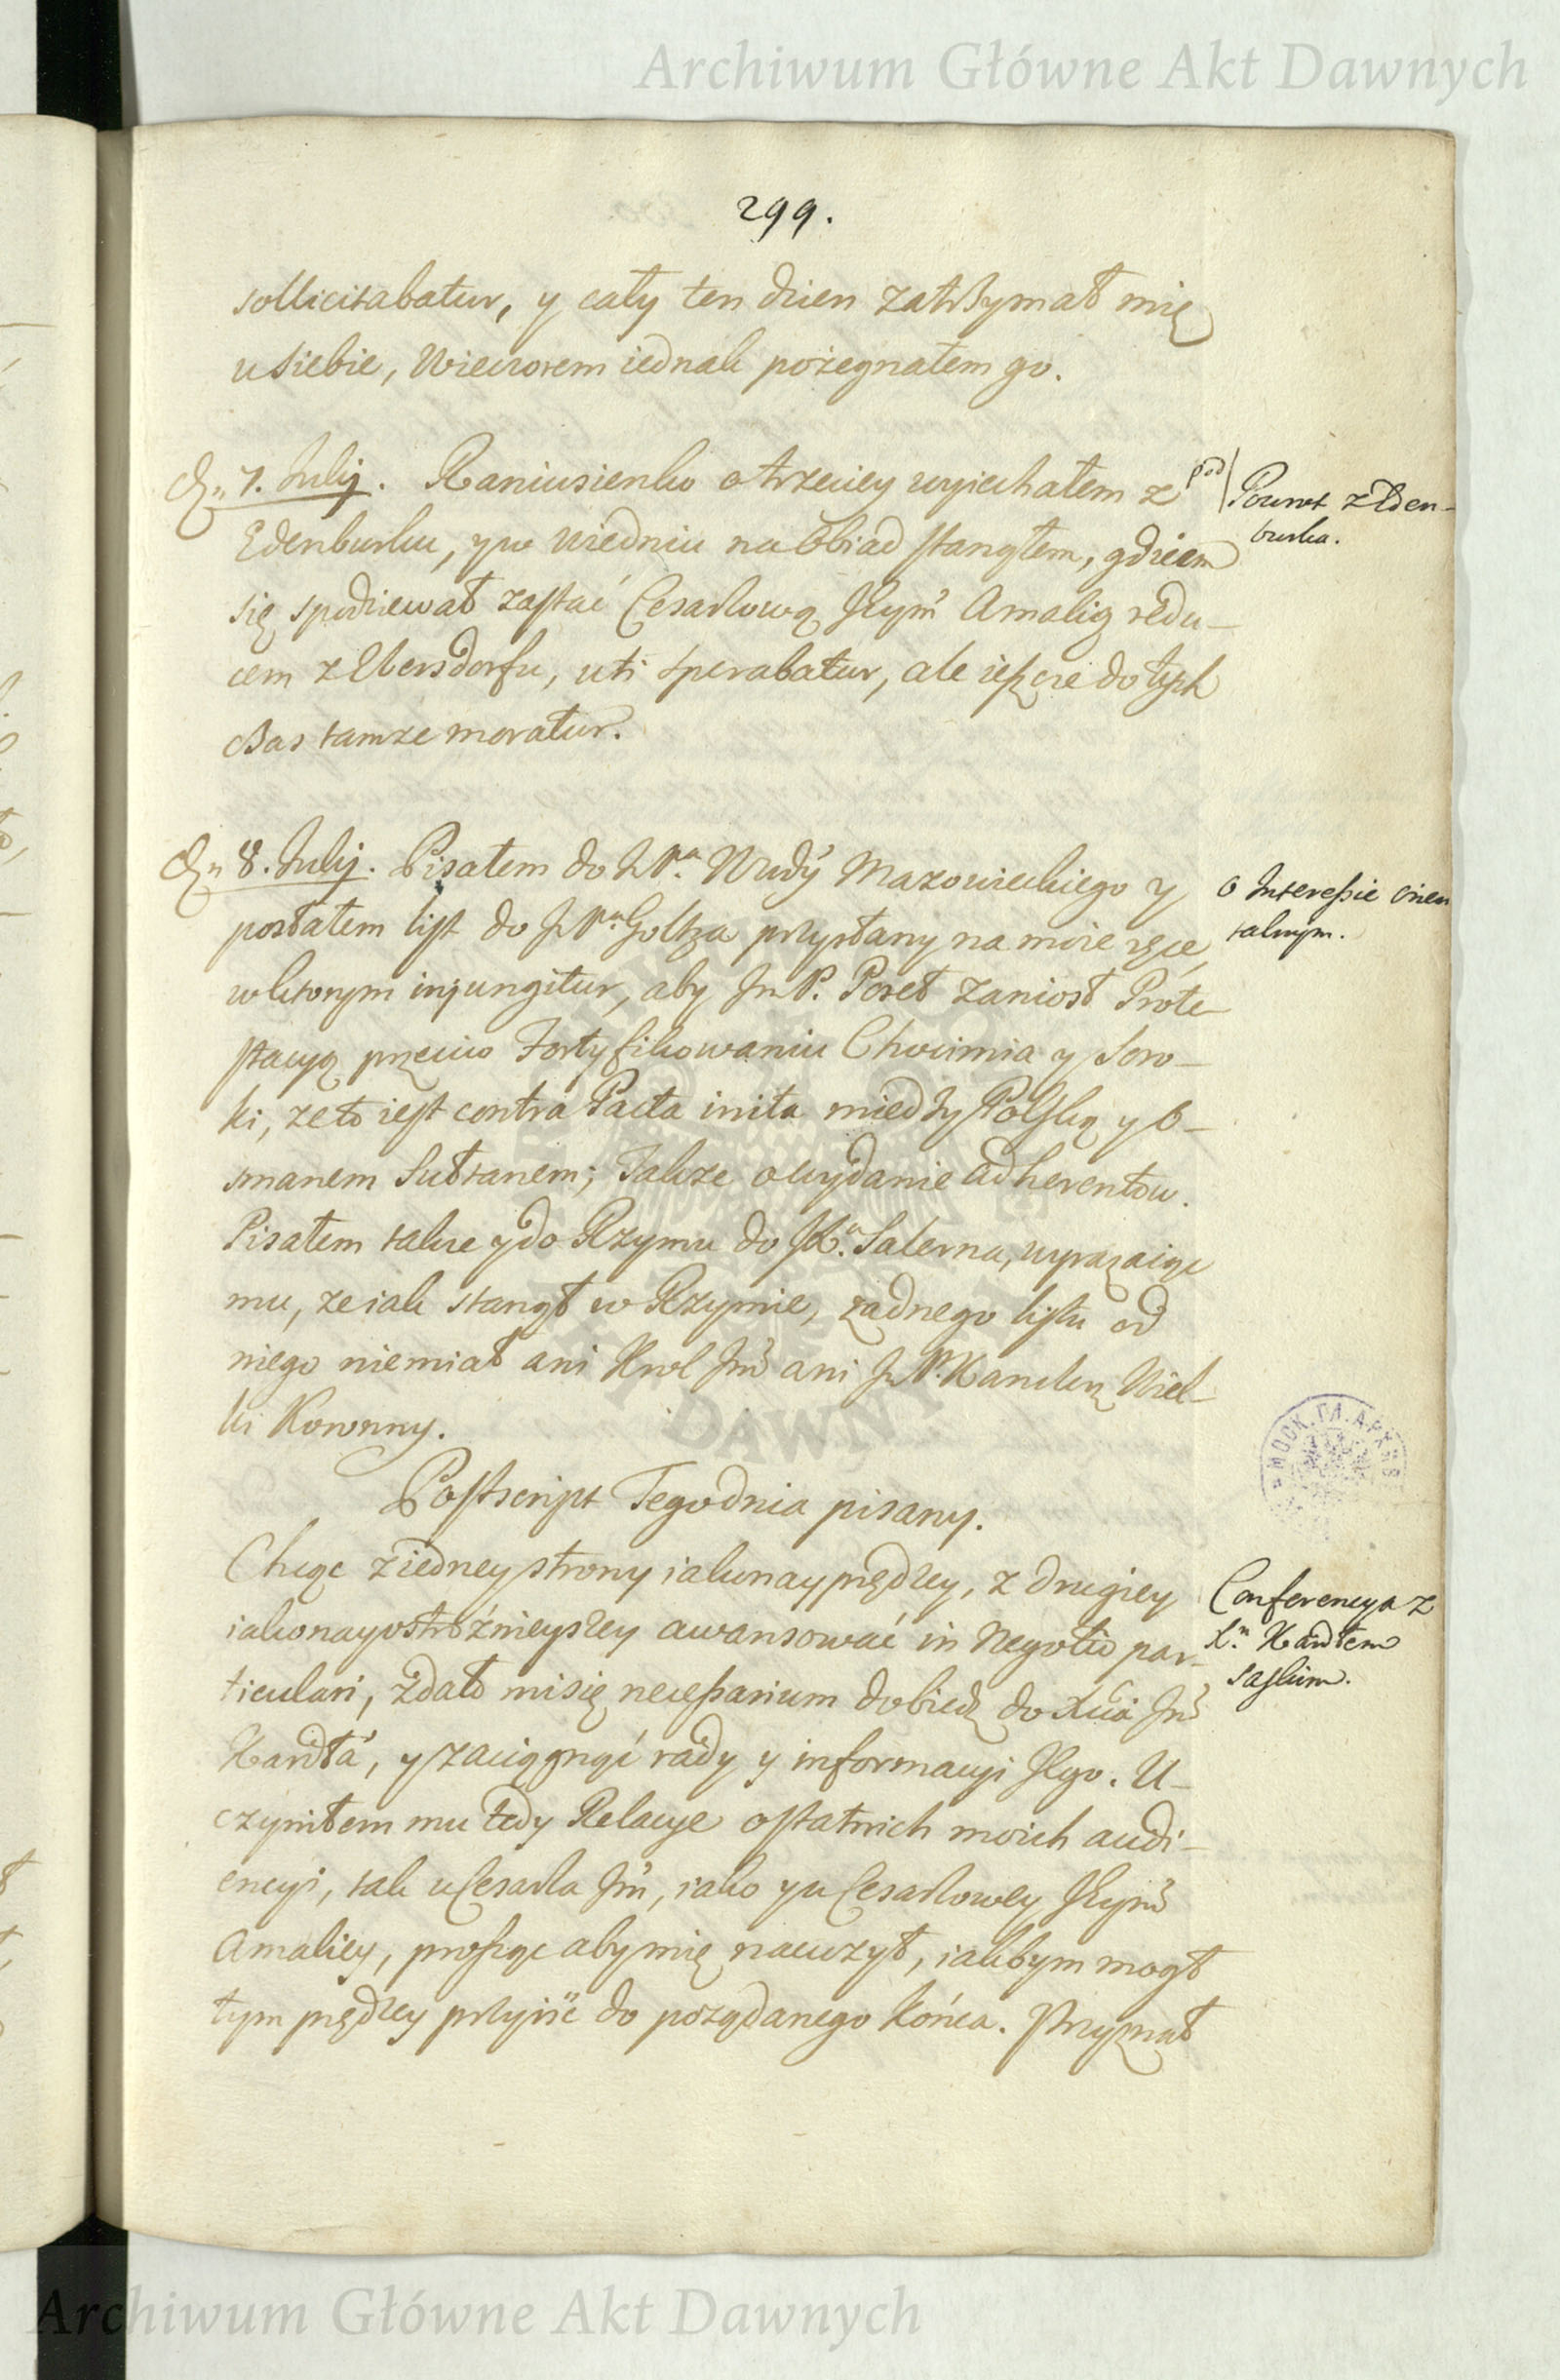 Archiwum Główne Akt Dawnych
299.
sollicitabatur, y cały ten dzien zatrzymał mię
u siebie, Wieczorem iednak pożegnałem go.
Dn 7. Julij. Raniusienko o trzeciey wyiechałem z pod
Powrot z Eden-
burka.
Edenburku, y w Wiedniu na Obiad stanąłem, gdziem
się spodziewał zastać Cesarzową Jeymć Amalią redu-
cem z Ebersdorfu, uti sperabatur, ale ieszcze do tych
czas tamze moratur.
Dn 8. Julij. Pisałem do J Pa. Wwdy Mazowieckiego y
o Interessie orien
talnym.
posłałem list do J Pa. Goltza przysłany na moie ręce,
w ktorym injungitur, aby Jm P. Poseł zaniosł Prote-
stacyą przeciw Fortyfikowaniu Chocimia y Soro-
ki, ze to iest contra Pacta inita między Polską y O-
smanem Sułtanem; Takze o wydanie adherentow.
Pisałem takze y do Rzymu do JX. Salerna, wyrazaiąc
mu, ze iak stanął w Rzymie, zadnego listu od
niego niemiał ani Krol Jmć ani J P. Kanclerz Wiel-
ki Koronny.
Postscript Tegodnia pisany.
Chcąc z iedney strony iak naypręd zey, z drugiey
Conferencya z
X.m Kardłem
Saskim.
iakonayostrożnieyszey awansować in Negotio par-
ticulari, zdało mi się necessarium dobiedz do Xcia Jmć
Kardła, y zaciągnąć rady y informacyi Jego. U-
czyniłem mu tedy Relacye ostatnich moich audi-
encyi, tak u Cesarza Jmć, iako y u Cesarzowey Jeymć
Amaliey, prosząc aby mię nauczył, iakbym mogł
tym prędzey przyiść do pożądanego końca. Przyznał
МОСК. ГЛ. АРХИВ
Archiwum Główne Akt Dawnych